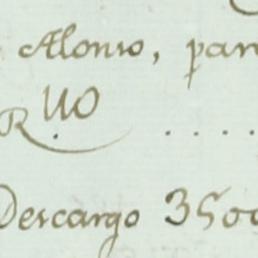 Alonso, par
R.llo ....
Descargo 3500